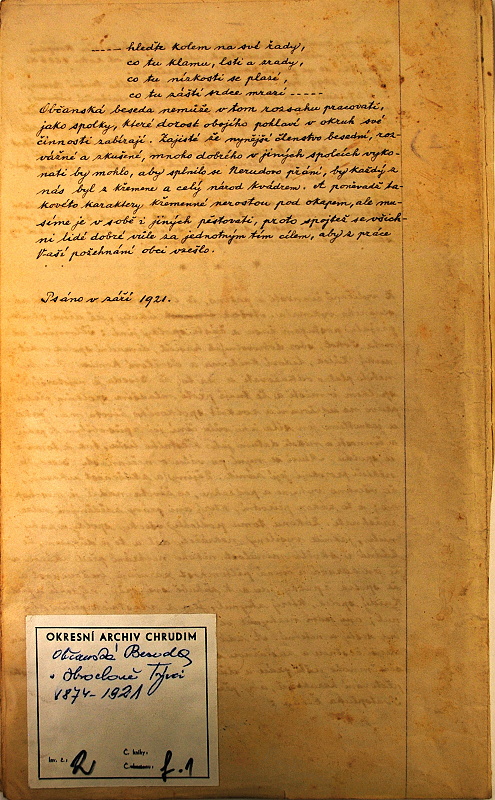 ----- hleďte kolem na své řady,
co tu klamu, lsti a zrady,
co tu nízkosti se plazí,
co tu záští srdce mrazí -----
Občanská beseda nemůže v tom rozsahu pracovati,
jako spolky, které dorost obojího pohlaví v okruh své
činnosti zabírají. Zajisté že nynější členstvo besední, roz-
vážné a zkušené, mnoho dobrého v jiných spolcích vyko-
nati by mohlo, aby splnilo se Nerudovo přání, by každý z
nás byl z křemene a celý národ kvádrem. A poněvadž ta-
kovéto karaktery křemenné nerostou pod okapem, ale mu-
síme je v sobě i jiných pěstovati, proto spojtež se všich-
ni lidé dobré vůle za jednotným tím cílem, aby z práce
Vaší požehnání obci vzešlo.
Psáno v září 1921.
OKRESNÍ ARCHIV CHRUDIM
Občanská Beseda
v Hrochově Týnci
1874-1921
Inv. č.: 2
Č. knihy:
f. 1